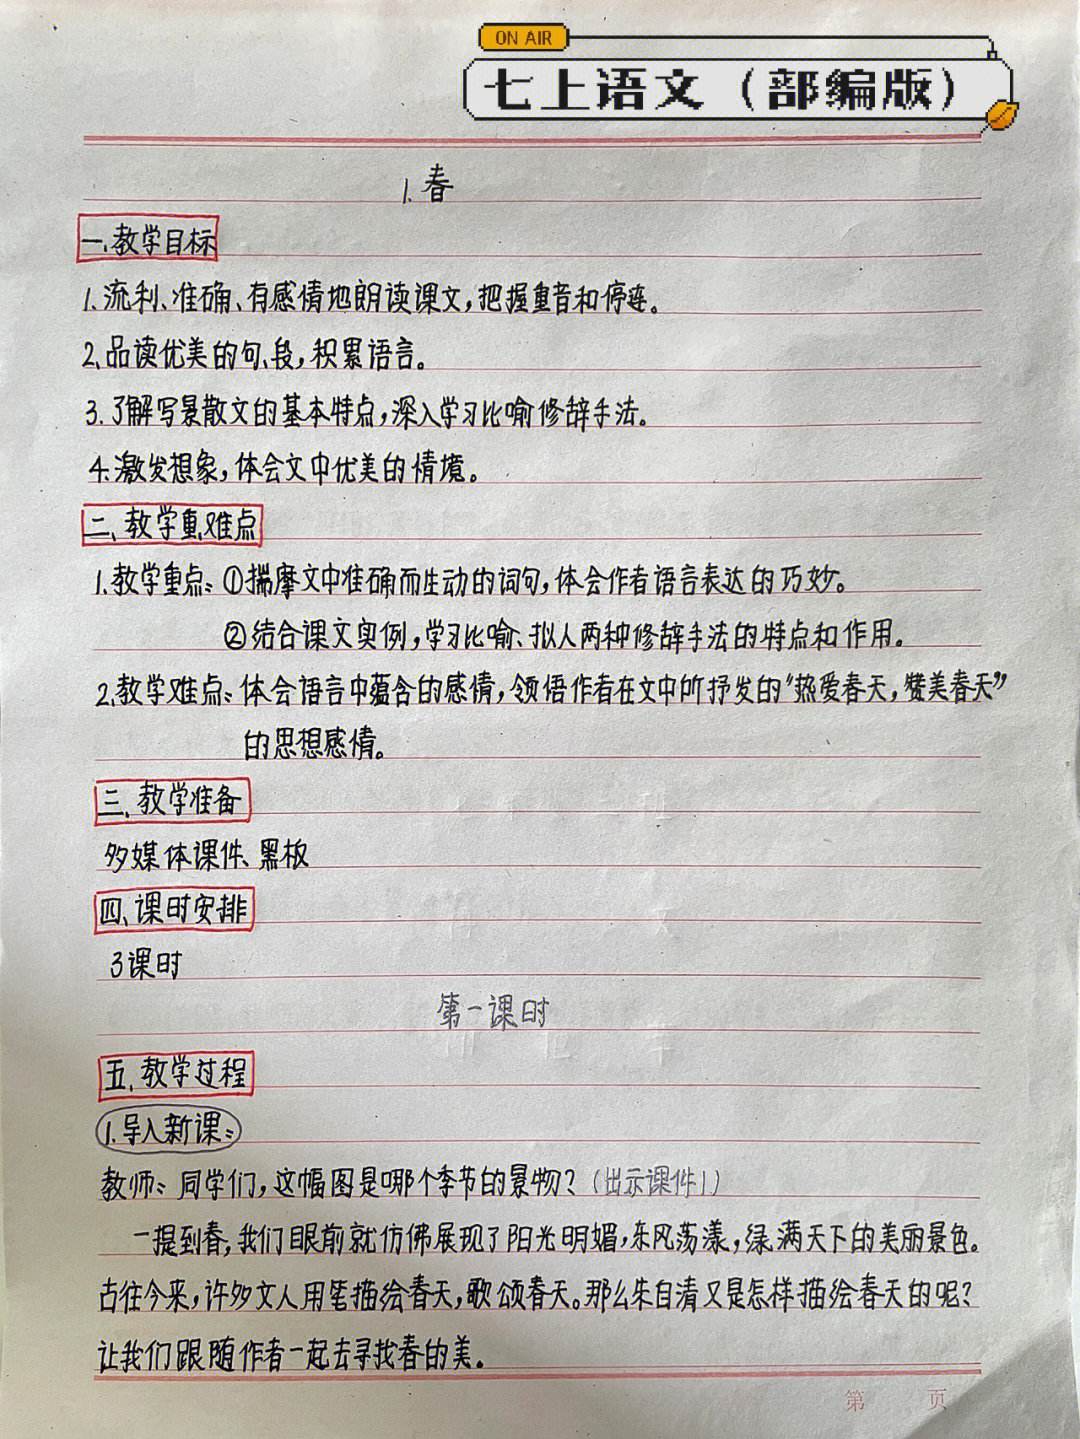 ON AIR
七上语文（部编版）
1.春
一、教学目标
1、流利、准确、有感情地朗读课文，把握重音和停连。
2、品读优美的句、段，积累语言。
3.了解写景散文的基本特点，深入学习比喻修辞手法。
4.激发想象，体会文中优美的情境。
二、教学重难点
1.教学重点：①揣摩文中准确而生动的词句，体会作者语言表达的巧妙。
②结合课文实例，学习比喻、拟人两种修辞手法的特点和作用。
2.教学难点：体会语言中蕴含的感情，领悟作者在文中所抒发的“热爱春天，赞美春天”
的思想感情。
三、教学准备
多媒体课件、黑板
四、课时安排
3课时
第一课时
五、教学过程
1.导入新课：
教师：同学们，这幅图是哪个季节的景物？（出示课件1）
一提到春，我们眼前就仿佛展现了阳光明媚，东风荡漾，绿满天下的美丽景色。
古往今来，许多文人用笔描绘春天，歌颂春天。那么朱自清又是怎样描绘春天的呢？
让我们跟随作者一起去寻找春的美。
第 页